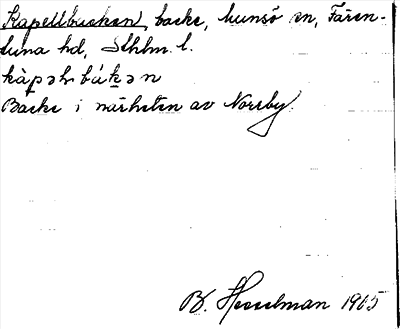 Kapellbacken, backe, Munsö sn, Fären-
tuna hd, Sthlm. l.
kàpəlsbákən
Backe i närheten av Norrby.
B. Hesselman 1905